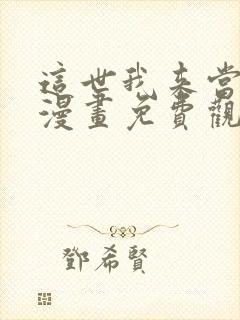 這世我來當
漫畫免費觀
鄧希賢